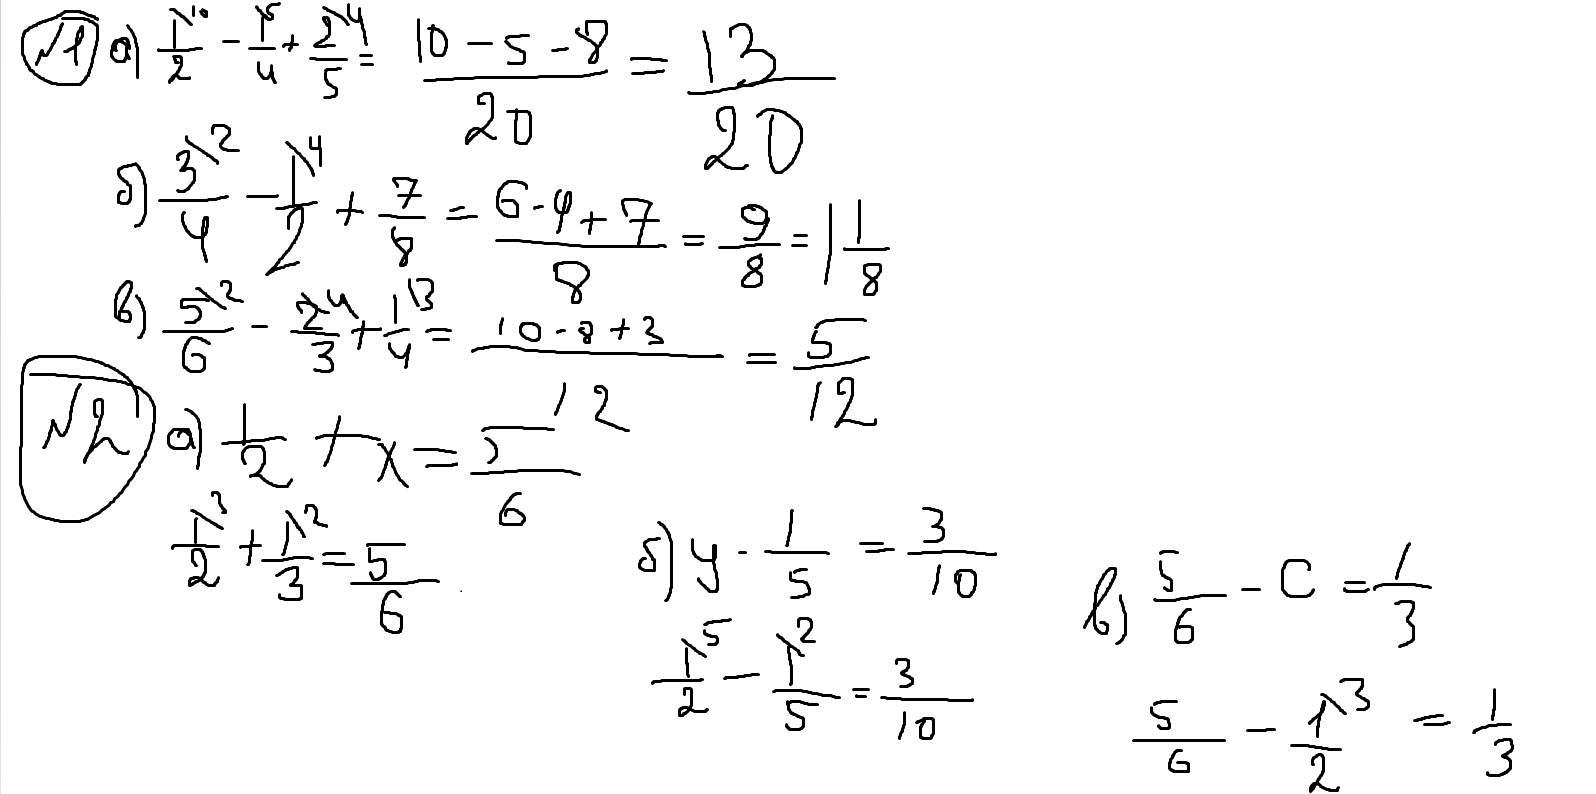 №1 а) 1/2^10 - 1/4^5 + 2/5^4 = (10 - 5 - 8)/20 = 13/20
б) 3/4^2 - 1/2^4 + 7/8 = (6 - 4 + 7)/8 = 9/8 = 1 1/8
в) 5/6^2 - 2/3^4 + 1/4^3 = (10 - 8 + 3)/12 = 5/12
№2 а) 1/2 + x = 5/6
1/2^3 + 1/3^2 = 5/6
б) y - 1/5 = 3/10
1/2^5 - 1/5^2 = 3/10
в) 5/6 - C = 1/3
5/6 - 1/2^3 = 1/3